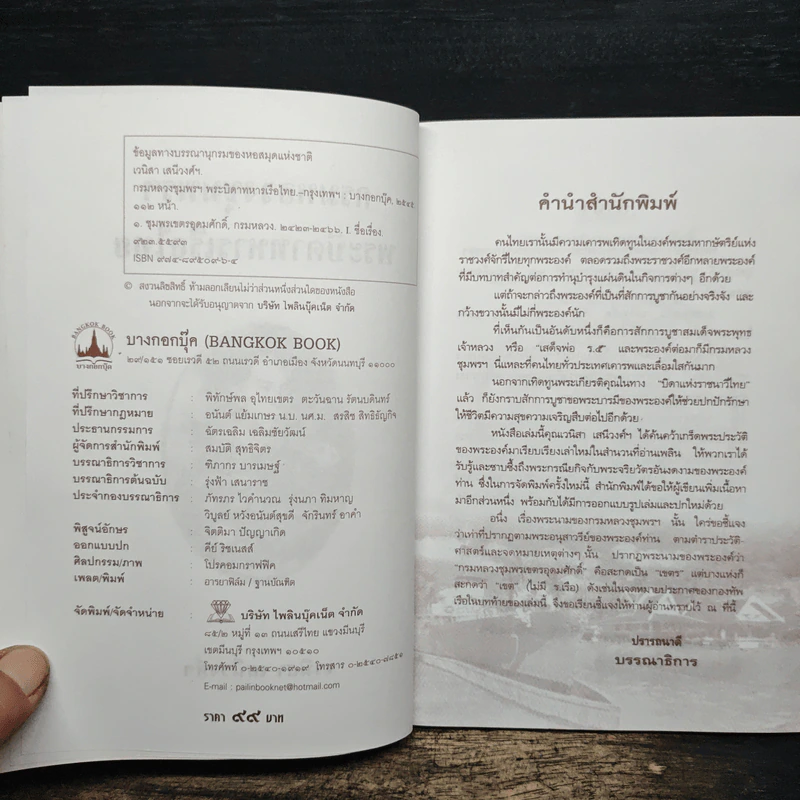 ข้อมูลทางบรรณานุกรมของหอสมุดแห่งชาติ
เวนิสา เสนีวงศ์ฯ.
กรมหลวงชุมพรฯ พระบิดาทหารเรือไทย.–กรุงเทพฯ : บางกอกบุ๊ค, ๒๕๔๕
๑๑๒ หน้า.
๑. ชุมพรเขตรอุดมศักดิ์, กรมหลวง. ๒๔๒๓-๒๔๖๖. I. ชื่อเรื่อง
๙๒๓.๕๕๙๓
ISBN ๙๗๔-๘๙๕๐๙๖-๔
© สงวนลิขสิทธิ์ ห้ามลอกเลียนไม่ว่าส่วนหนึ่งส่วนใดของหนังสือ
นอกจากจะได้รับอนุญาตจาก บริษัท ไพลินบุ๊คเน็ต จำกัด
BANGKOK BOOK
บางกอกบุ๊ค
บางกอกบุ๊ค (BANGKOK BOOK)
๒๙/๑๕๑ ซอยเรวดี ๕๒ ถนนเรวดี อำเภอเมือง จังหวัดนนทบุรี ๑๑๐๐๐
ที่ปรึกษาวิชาการ : พิทักษ์พล อุไทยเขตร ตะวันฉาน รัตนบดินทร์
ที่ปรึกษากฎหมาย : อนันต์ แย้มเกษร น.บ. นศ.ม. สรสิช สิทธิธัญกิจ
ประธานกรรมการ : ฉัตรเฉลิม เฉลิมชัยวัฒน์
ผู้จัดการสำนักพิมพ์ : สมบัติ สุทธิจิตร
บรรณาธิการวิชาการ : ฑิภากร บารเมษฐ์
บรรณาธิการต้นฉบับ : รุ่งฟ้า เสนาราช
ประจำกองบรรณาธิการ : ภัทรภร ไวคำนวณ รุ่งนภา ทิมหาญ
วิบูลย์ หวังอนันต์สุขดี จักรินทร์ อาคำ
พิสูจน์อักษร : จิตติมา ปัญญาเกิด
ออกแบบปก : คีย์ ริชเนสส์
ศิลปกรรม/ภาพ : โปรคอมกราฟฟิค
เพลต/พิมพ์ : อารยาฟิล์ม / ฐานบัณฑิต
จัดพิมพ์/จัดจำหน่าย : บริษัท ไพลินบุ๊คเน็ต จำกัด
๘๕/๒ หมู่ที่ ๑๓ ถนนเสรีไทย แขวงมีนบุรี
เขตมีนบุรี กรุงเทพฯ ๑๐๕๑๐
โทรศัพท์ ๐-๒๕๔๐-๑๙๑๙ โทรสาร ๐-๒๕๔๐-๗๘๕๑
E-mail : pailinbooknet@hotmail.com
ราคา ๙๙ บาท
คำนำสำนักพิมพ์
คนไทยเรานั้นมีความเคารพเทิดทูนในองค์พระมหากษัตริย์แห่ง
ราชวงศ์จักรีไทยทุกพระองค์ ตลอดรวมถึงพระราชวงศ์อีกหลายพระองค์
ที่มีบทบาทสำคัญต่อการทำนุบำรุงแผ่นดินในกิจการต่างๆ อีกด้วย
แต่ถ้าจะกล่าวถึงพระองค์ที่เป็นที่สักการบูชากันอย่างจริงจัง และ
กว้างขวางนั้นมีไม่กี่พระองค์นัก
ที่เห็นกันเป็นอันดับหนึ่งก็คือการสักการบูชาสมเด็จพระพุทธ
เจ้าหลวง หรือ "เสด็จพ่อ ร.๕" และพระองค์ต่อมาก็มีกรมหลวง
ชุมพรฯ นี่แหละที่คนไทยทั่วประเทศเคารพและเลื่อมใสกันมาก
นอกจากเทิดทูนพระเกียรติคุณในทาง "บิดาแห่งราชนาวีไทย"
แล้ว ก็ยังกราบสักการบูชาขอพระบารมีของพระองค์ให้ช่วยปกปักรักษา
ให้ชีวิตมีความสุขความเจริญสืบต่อไปอีกด้วย.
หนังสือเล่มนี้คุณเวนิสา เสนีวงศ์ฯ ได้ค้นคว้าเกร็ดพระประวัติ
ของพระองค์มาเรียบเรียงเล่าใหม่ในสำนวนที่อ่านเพลิน ให้พวกเราได้
รับรู้และซาบซึ้งถึงพระกรณียกิจกับพระจริยวัตรอันงดงามของพระองค์
ท่าน ซึ่งในการจัดพิมพ์ครั้งใหม่นี้ สำนักพิมพ์ได้ขอให้ผู้เขียนเพิ่มเนื้อหา
มาอีกส่วนหนึ่ง พร้อมกับได้มีการออกแบบรูปเล่มและปกใหม่ด้วย
อนึ่ง เรื่องพระนามของกรมหลวงชุมพรฯ นั้น ใคร่ขอชี้แจง
ว่าเท่าที่ปรากฏตามพระอนุสาวรีย์ของพระองค์ท่าน ตามตำราประวัติ-
ศาสตร์และจดหมายเหตุต่างๆ นั้น ปรากฏพระนามของพระองค์ว่า
"กรมหลวงชุมพรเขตรอุดมศักดิ์" คือสะกดเป็น "เขตร" แต่บางแห่งก็
สะกดว่า "เขต" (ไม่มี ร.เรือ) ดังเช่นในจดหมายประกาศของกองทัพ
เรือในบทท้ายของเล่มนี้ จึงขอเรียนชี้แจงให้ท่านผู้อ่านทราบไว้ ณ ที่นี้
ปรารถนาดี
บรรณาธิการ